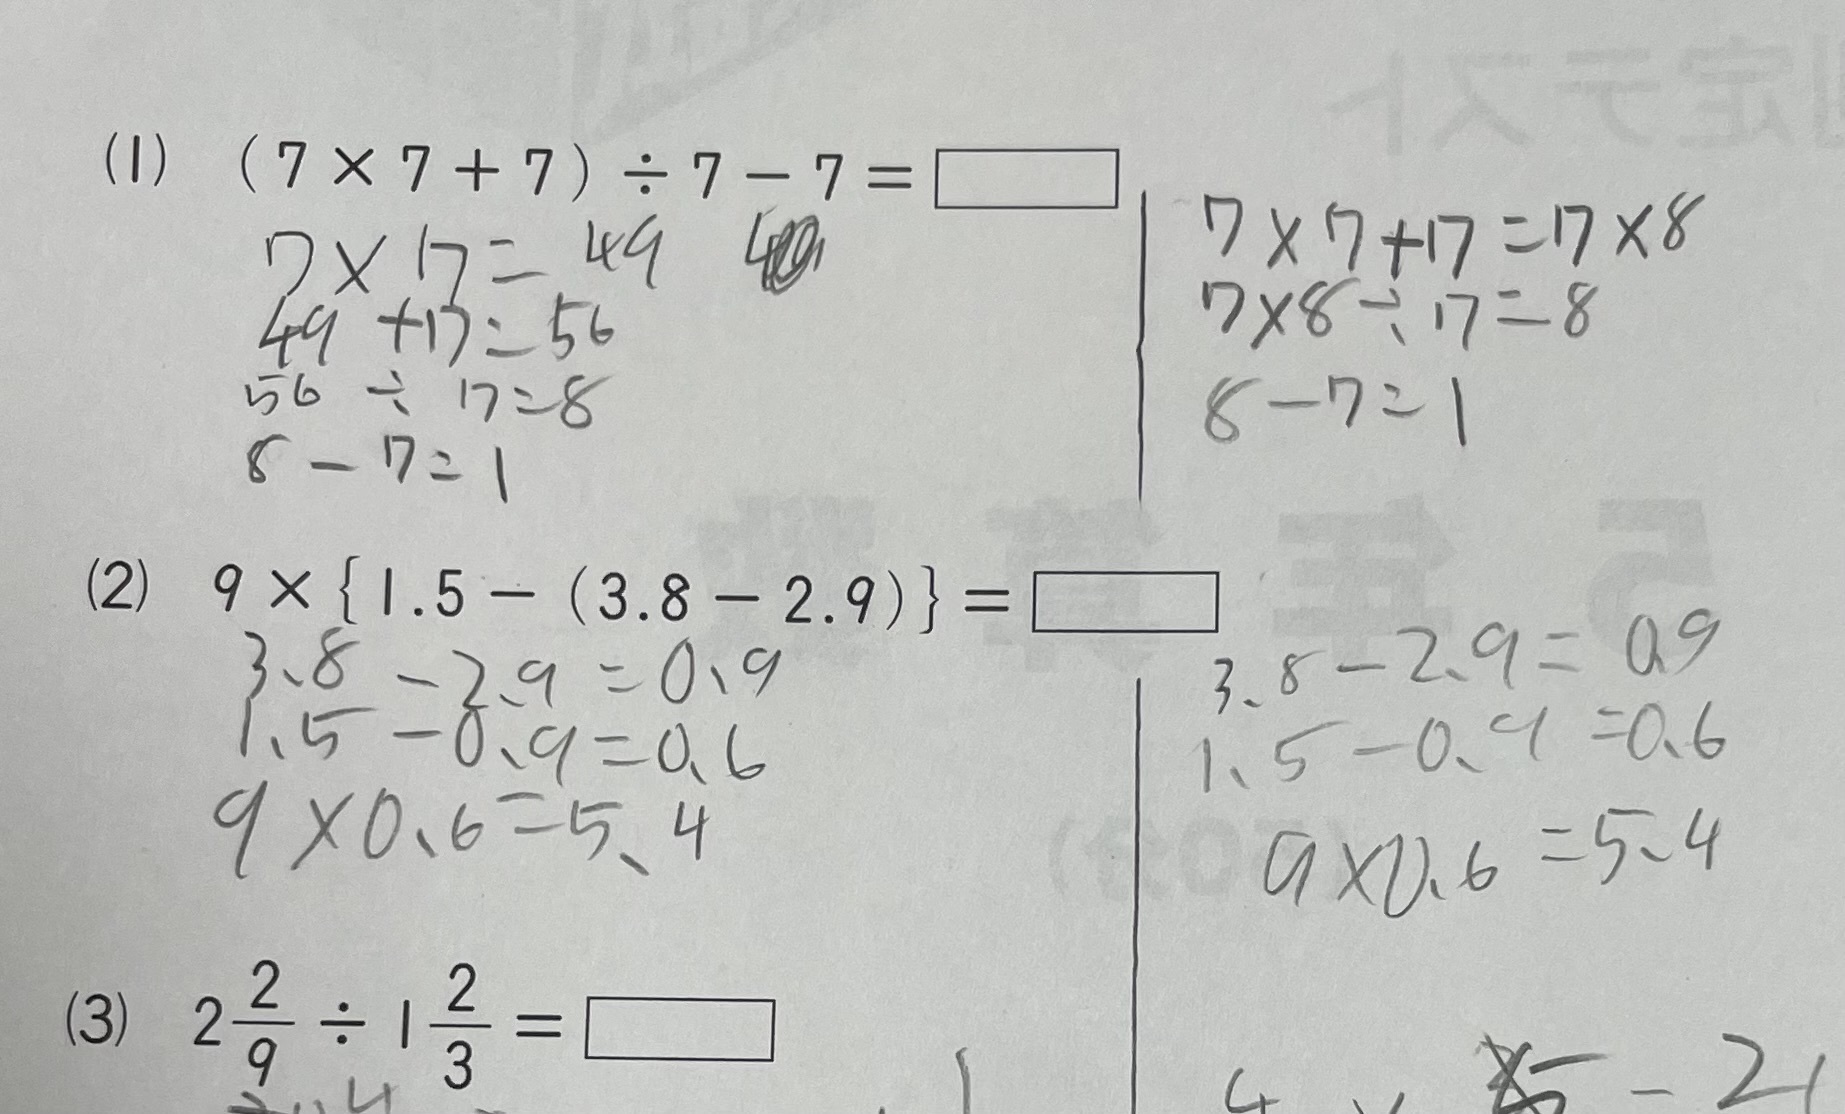 (1) (7×7+7)÷7−7=
7×7=49
49+7=56
56÷7=8
8−7=1
7×7+7=7×8
7×8÷7=8
8−7=1
(2) 9×{1.5−(3.8−2.9)}=
3.8−2.9=0.9
1.5−0.9=0.6
9×0.6=5.4
3.8−2.9=0.9
1.5−0.9=0.6
9×0.6=5.4
(3) 2 2/9÷1 2/3=